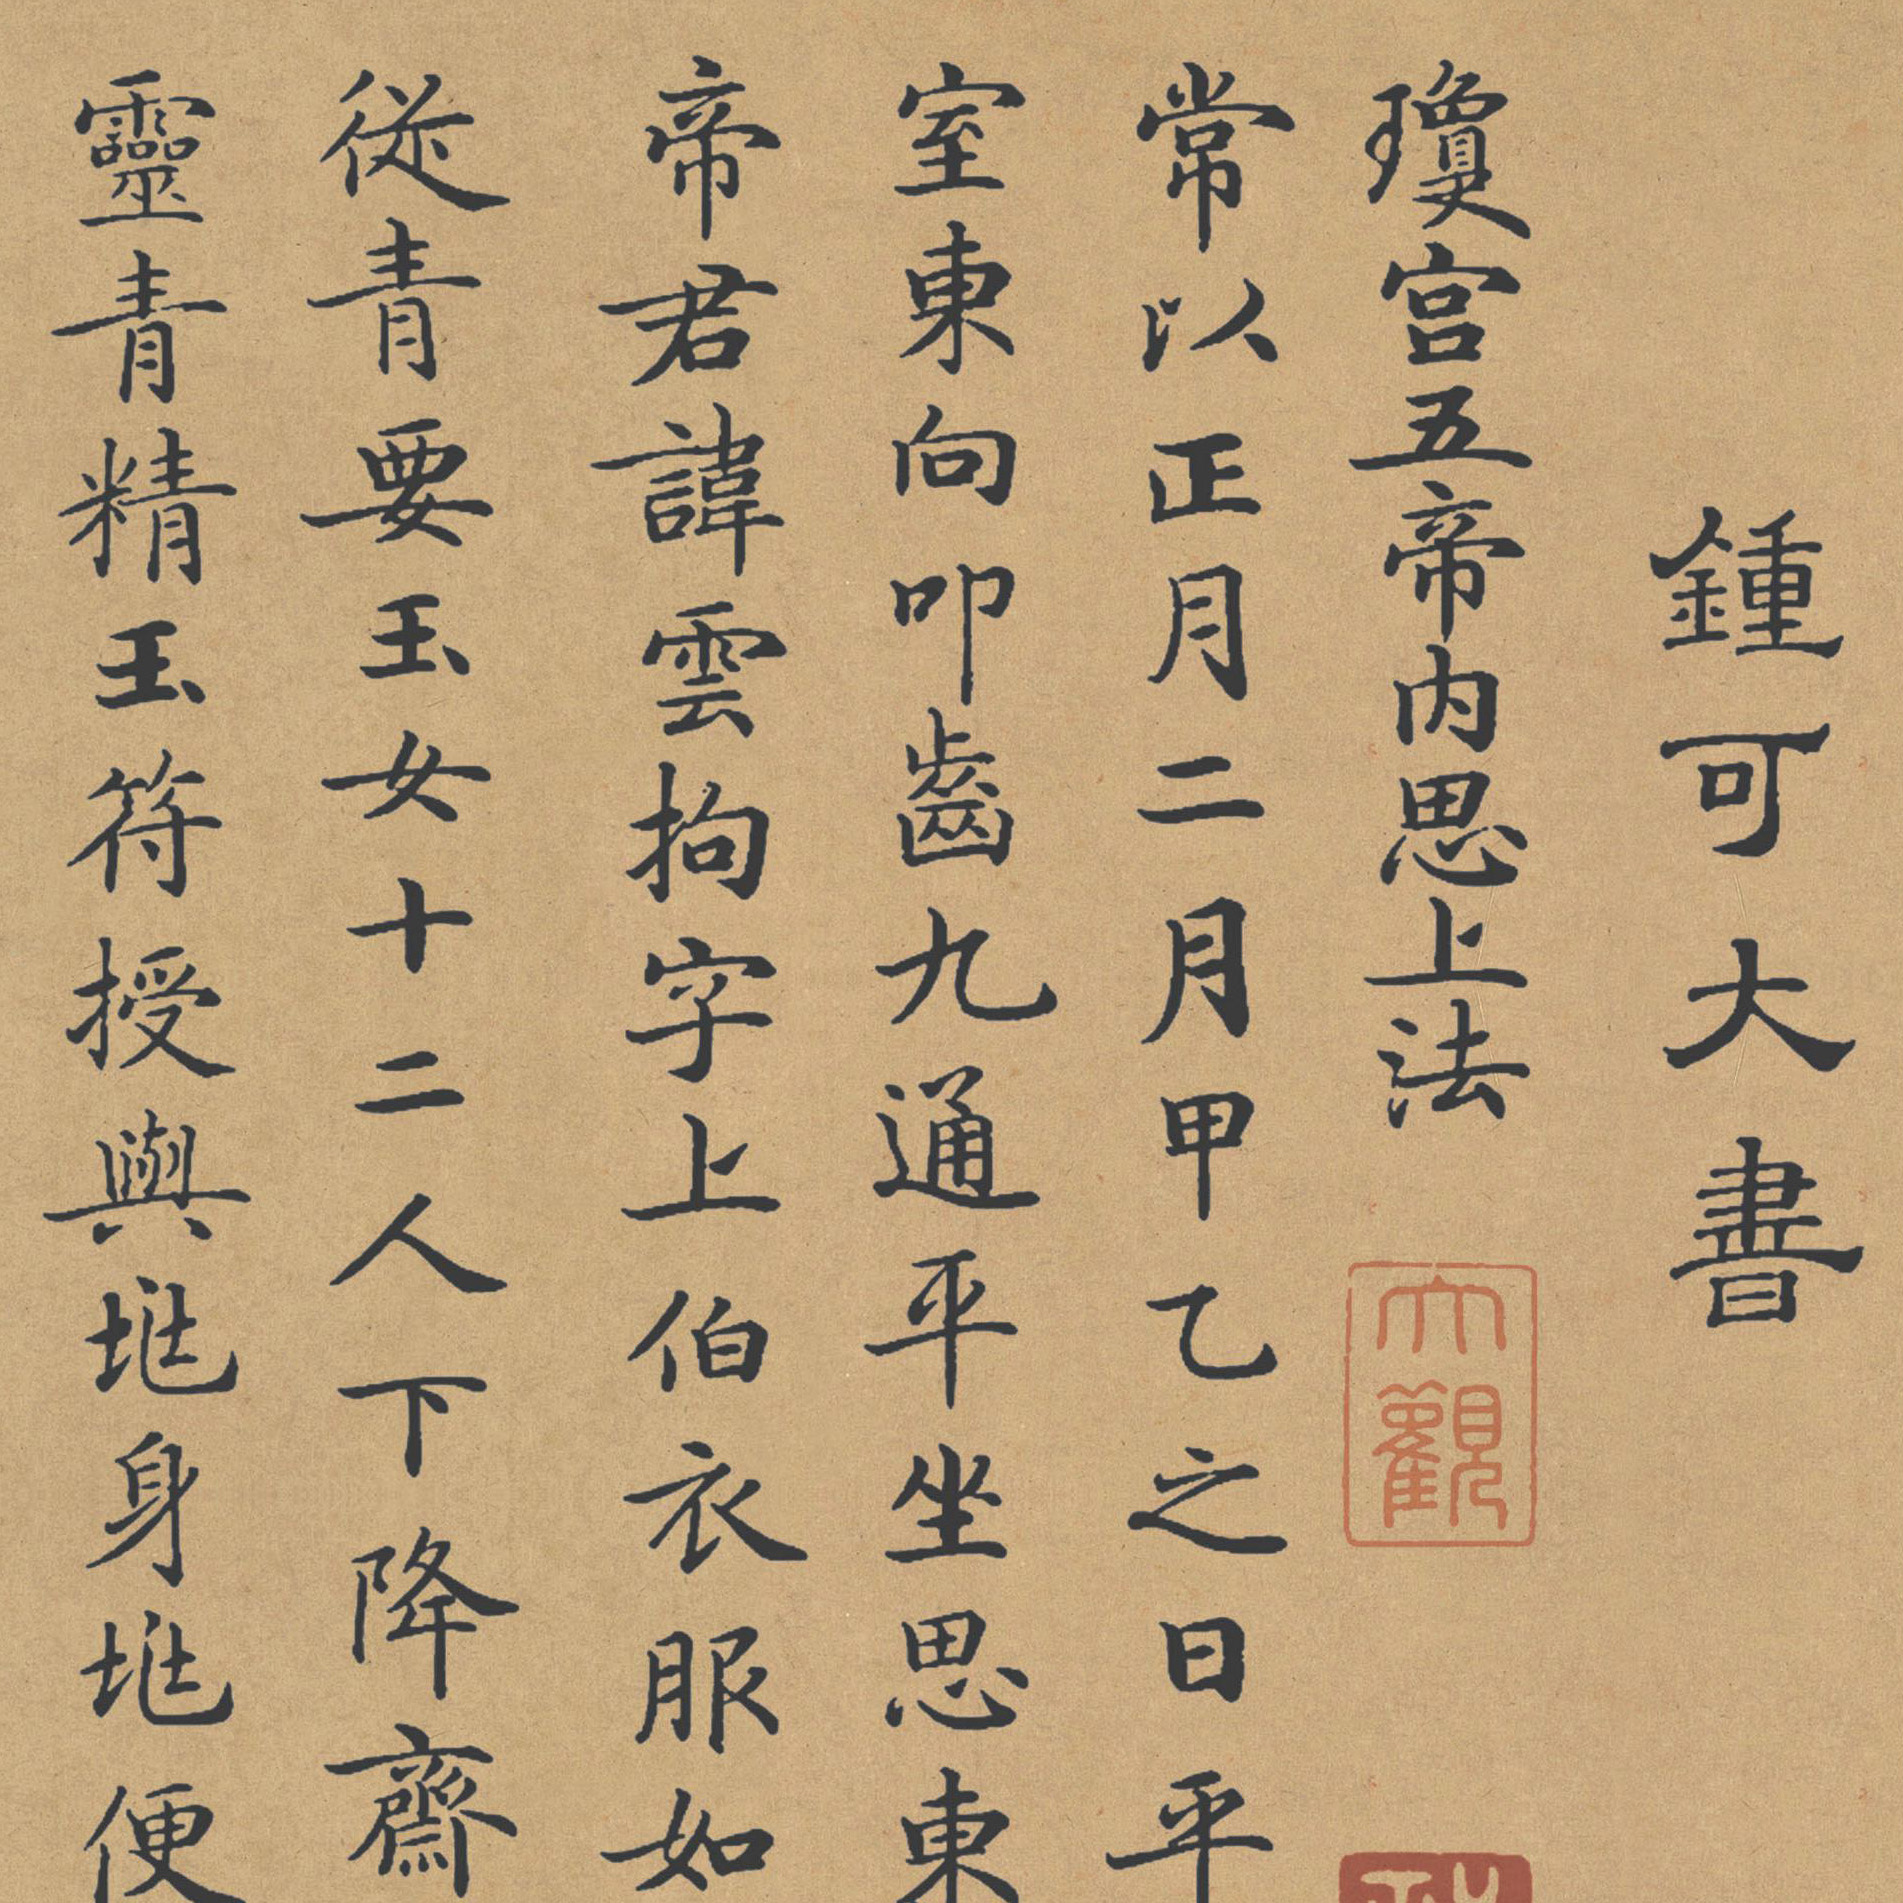 鍾可大書
瓊宫五帝内思上法
大觀
常以正月二月甲乙之日平
室東向叩齒九通平坐思東
帝君諱雲拘字上伯衣服如
從青要玉女十二人下降齋
靈青精玉符授與兆身兆便